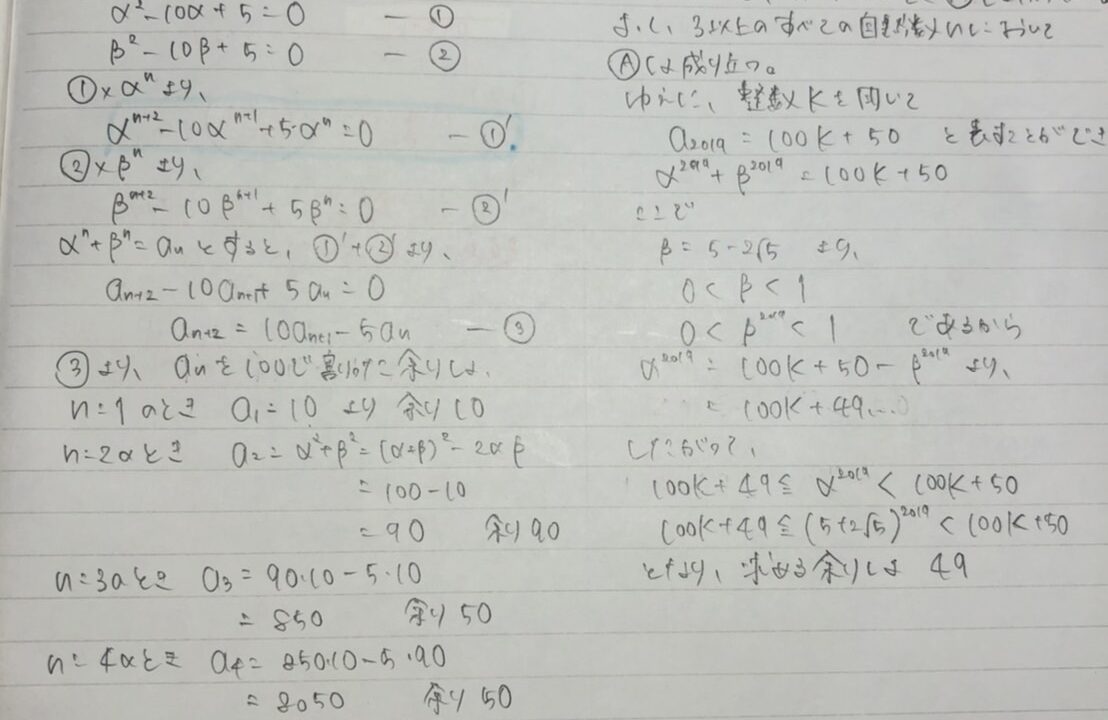 α²-10α+5=0 ― ①
β²-10β+5=0 ― ②
①×αⁿ より、
αⁿ⁺²-10αⁿ⁺¹+5・αⁿ=0 ― ①'.
②×βⁿ より、
βⁿ⁺²-10βⁿ⁺¹+5βⁿ=0 ― ②'
αⁿ+βⁿ=aₙ とすると、①'+②' より、
aₙ₊₂-10aₙ₊₁+5aₙ=0
aₙ₊₂=10aₙ₊₁-5aₙ ― ③
③より、aₙを100で割った余りは、
n=1のとき a₁=10 より 余り10
n=2のとき a₂=α²+β²=(α+β)²-2αβ
=100-10
=90 余り90
n=3のとき a₃=90・10-5・10
=850 余り50
n=4のとき a₄=850・10-5・90
=8050 余り50
よって、3以上のすべての自然数nにおいて
Ⓐは成り立つ。
ゆえに、整数Kを用いて
a₂₀₁₉=100K+50 と表すことができ
α²⁰¹⁹+β²⁰¹⁹=100K+50
ここで
β=5-2√5 より、
0<β<1
0<β²⁰¹⁹<1 であるから
α²⁰¹⁹=100K+50-β²⁰¹⁹ より、
=100K+49...
したがって、
100K+49≦α²⁰¹⁹<100K+50
100K+49≦(5+2√5)²⁰¹⁹<100K+50
となり、求める余りは 49